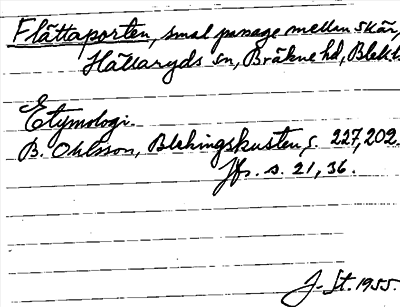 Flättaporten, smal passage mellan skär,
Hällaryds sn, Bräkne hd, Blek.
Etymologi.
B. Ohlsson, Blekingskusten, s. 227, 202.
Jfr. s. 21, 36.
J. St. 1955.